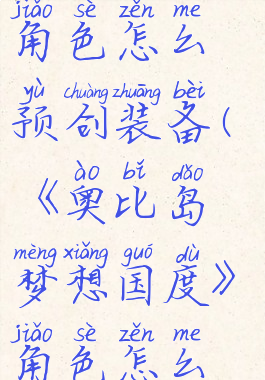 jiǎo sè zěn me
角色怎么
yù chuàng zhuāng bèi
预创装备(
ào bǐ dǎo
《奥比岛
mèng xiǎng guó dù
梦想国度》
jiǎo sè zěn me
角色怎么